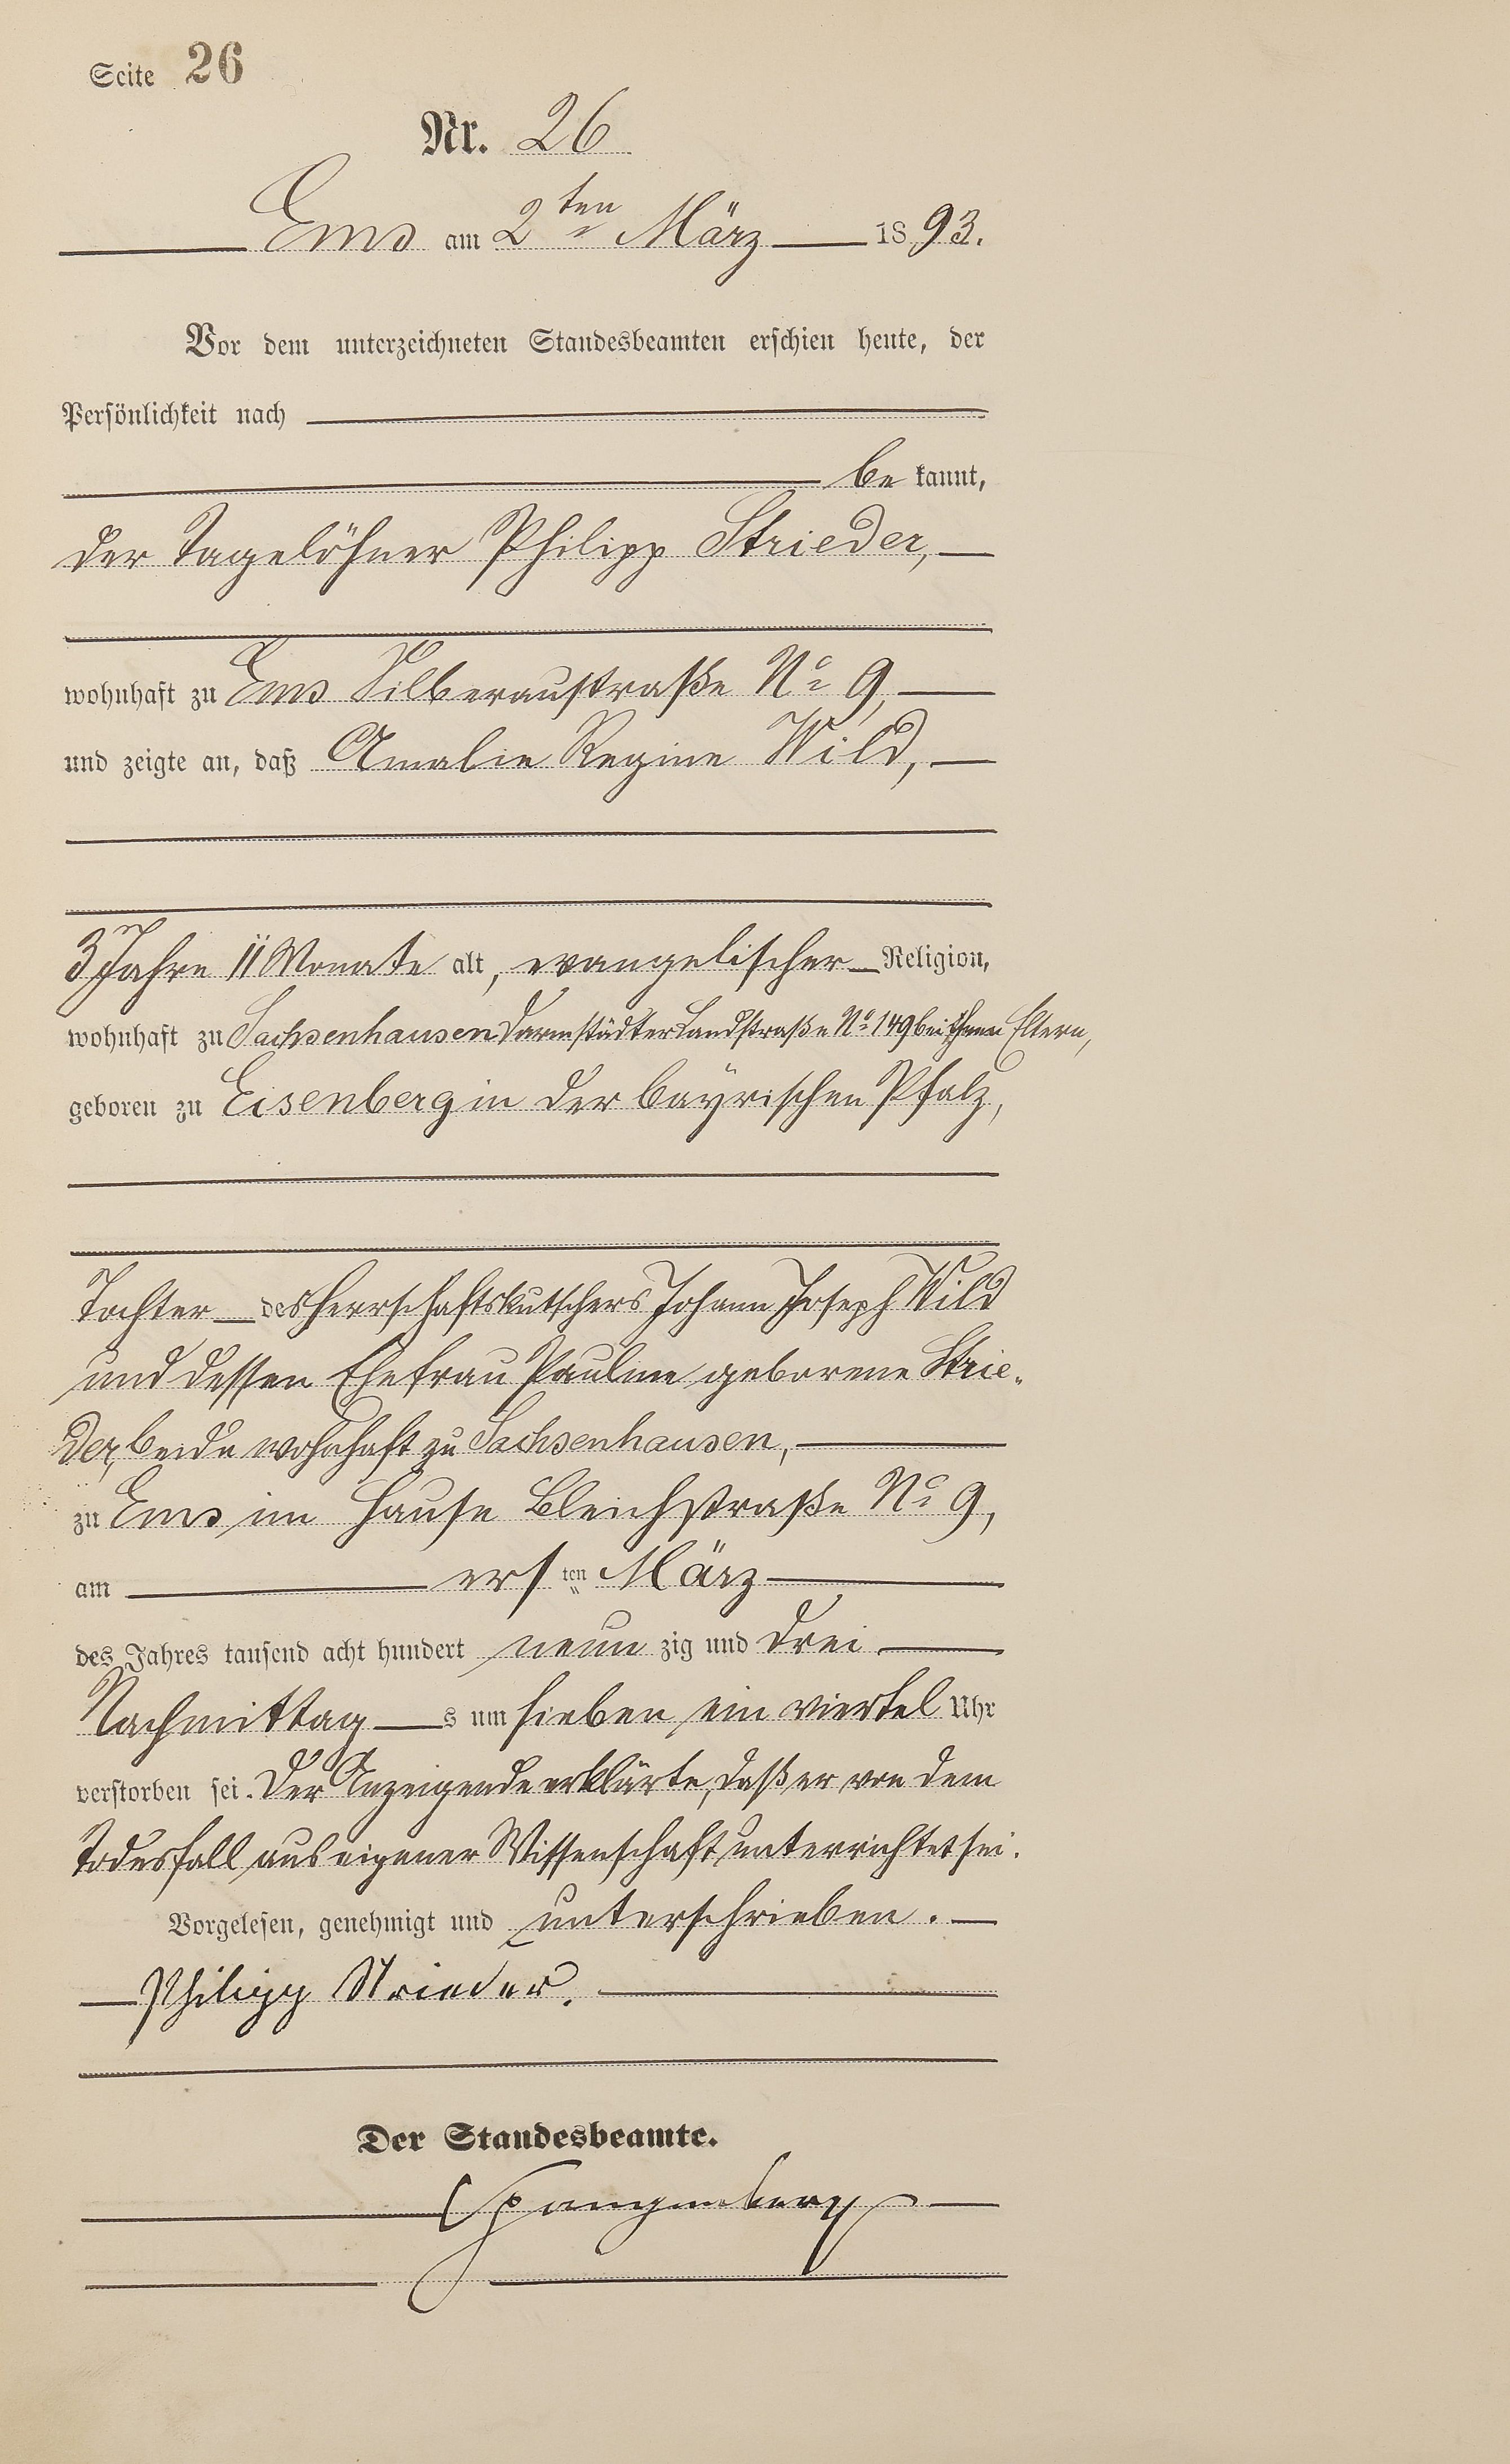 Seite 26
Nr. 26
Ems am 2ten März 1893.
Vor dem unterzeichneten Standesbeamten erschien heute, der
Persönlichkeit nach
be kannt,
der Tagelöhner Philipp Strieder,
wohnhaft zu Ems Silberaustraße No 9,
und zeigte an, daß Amalie Regine Wild,
3 Jahre 11 Monate alt, evangelischer Religion,
wohnhaft zu Sachsenhausen Darmstädter Landstraße No 149 bei ihren Eltern,
geboren zu Eisenberg in der bayrischen Pfalz,
Tochter des Herrschaftskutschers Johann Joseph Wild
und dessen Ehefrau Pauline geborene Strie-
der, beide wohnhaft zu Sachsenhausen,
zu Ems im Hause Bleichstraße No 9,
am ersten März
des Jahres tausend acht hundert neun zig und drei
Nachmittag s um sieben ein viertel Uhr
verstorben sei. Der Anzeigende erklärte, daß er von dem
Todesfall aus eigener Wissenschaft unterrichtet sei.
Vorgelesen, genehmigt und unterschrieben.
Philipp Strieder.
Der Standesbeamte.
Spangenberg